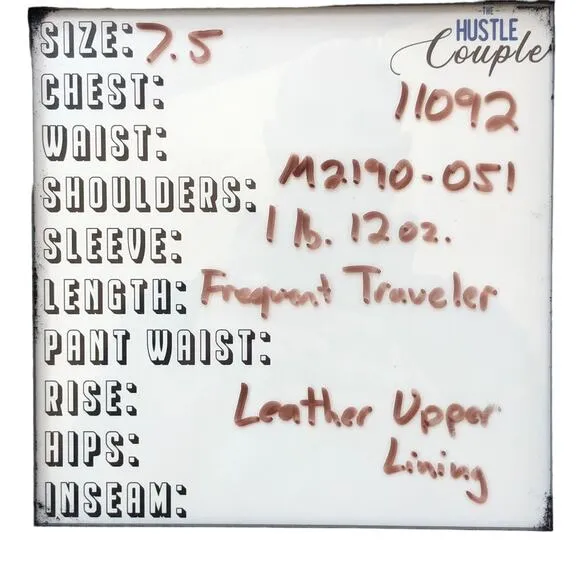 THE
HUSTLE
Couple
SIZE: 7.5
CHEST:
11092
WAIST:
M2190-051
SHOULDERS:
1 lb. 12oz.
SLEEVE:
LENGTH: Frequent Traveler
PANT WAIST:
RISE:
Leather Upper
HIPS:
Lining
INSEAM: